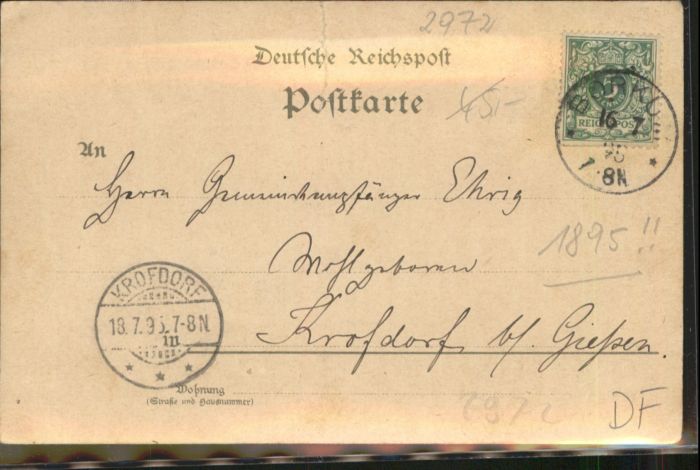 2972
Deutsche Reichspost
Postkarte
45,-
REICHSPOST
BORKUM
16 7
95
7-8N
An
Herrn Gemeindeempfänger Ehrig
Wohlgeboren
1895!!
Krofdorf b/ Gießen.
KROFDORF
18.7.95.7-8N.
Wohnung
(Straße und Hausnummer)
2972
DF